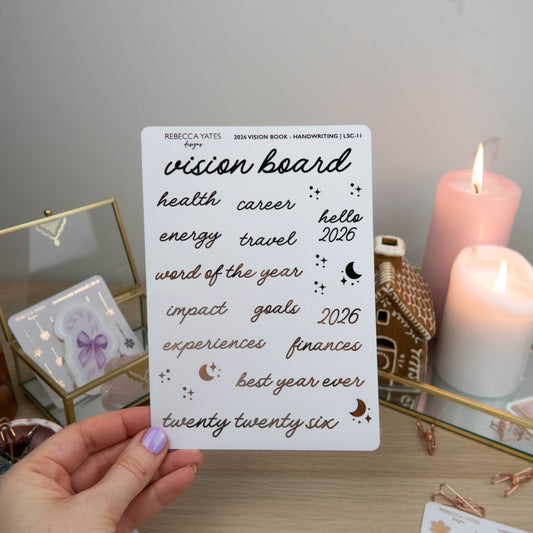 REBECCA YATES
designs
2026 VISION BOOK - HANDWRITING | LSC-11
vision board
health
career
hello
2026
energy
travel
word of the year
impact
goals
2026
experiences
finances
best year ever
twenty twenty six
REBECCA YATES
REBECCA YATES